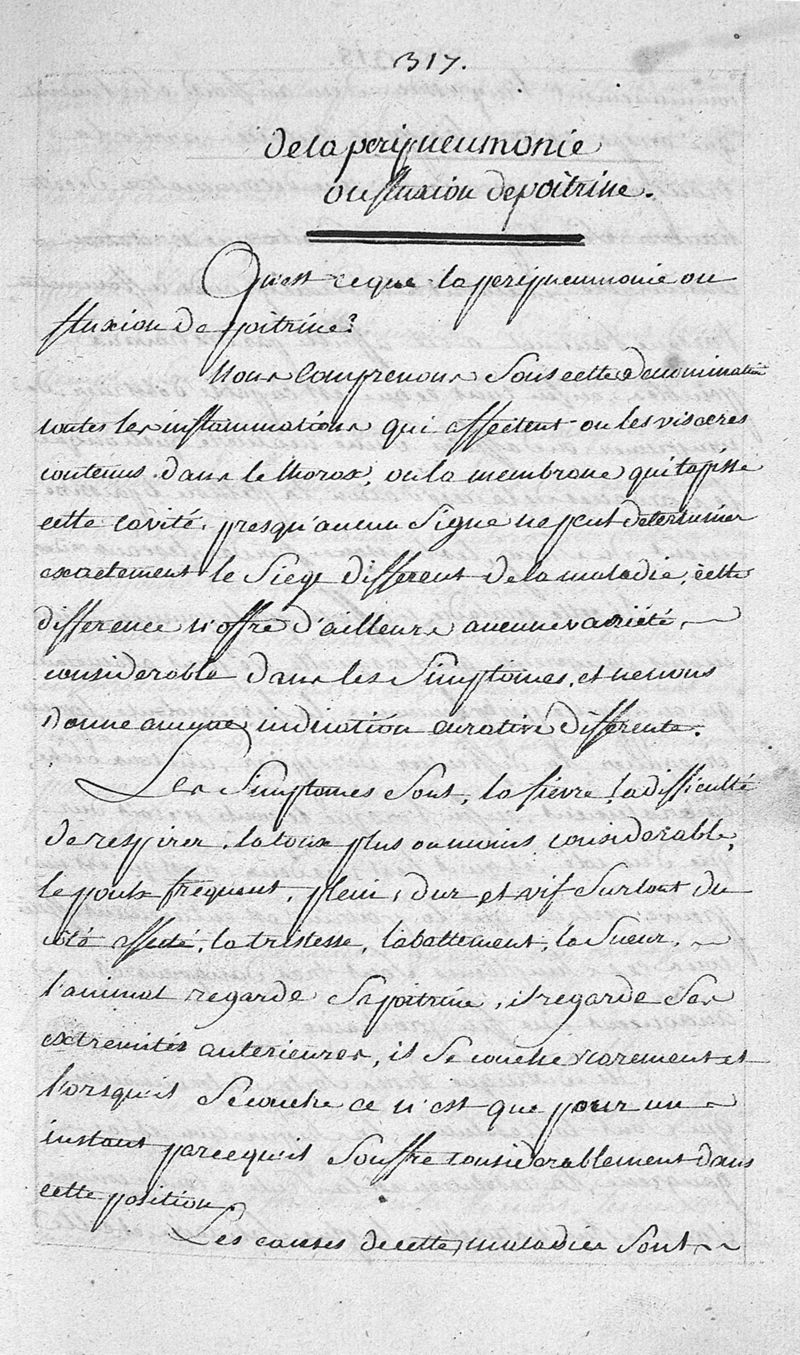 317.
de la peripneumonie
ou fluxion de poitrine.
Qu'est ce que la peripneumonie ou
fluxion de poitrine?
Nous comprenons sous cette denomination
toutes les inflammations qui affectent ou les visceres
contenus dans le thorax, ou la membrane qui tapisse
cette cavité, presqu'aucun signe ne peut determiner
exactement le siege different de la maladie, cette
difference n'offre d'ailleurs aucune varieté,
considerable dans les simptomes, et ne nous
donne aucune indication curative differente.
Les simptomes sont, la fievre, la difficulté
de respirer, la toux plus ou moins considerable,
le pouls frequent, plein, dur et vif surtout du
côté affecté, la tristesse, l'abattement, la sueur,
l'animal regarde sa poitrine, il regarde ses
extremités anterieures, il se couche rarement et
lorsqu'il se couche ce n'est que pour un
instant parcequ'il souffre considerablement dans
cette position.
Les causes de cette maladies sont